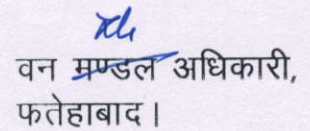 वन मण्डल अधिकारी,
फतेहाबाद।